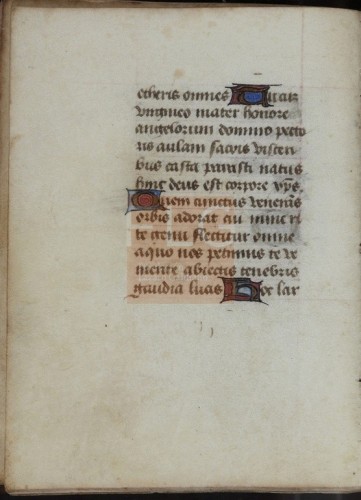 etheris omnes Quae
virgineo mater honore
angelorum domino pecto
ris aulam sacris viscen
bus casta parasti natus
hinc deus est corpore xp̄s.
Quem cunctus venerans
orbis adorat cui nunc ri
te genu flectitur omne
a quo nos petimus te ve
niente abiectis tenebris
gaudia lucis Hoc lar